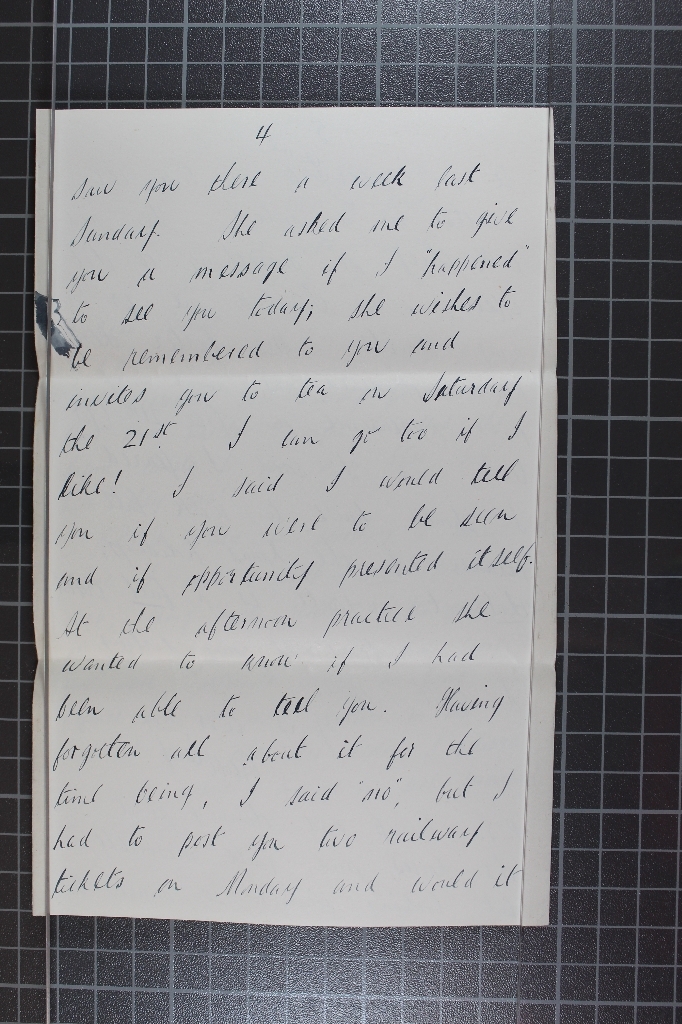 4
saw you there a week last
Sunday. She asked me to give
you a message if I "happened"
to see you today; she wishes to
be remembered to you and
invites you to tea on Saturday
the 21st. I can go too if I
like! I said I would tell
you if you were to be seen
and if opportunity presented itself.
At the afternoon practice she
wanted to know if I had
been able to tell you. Having
forgotten all about it for the
time being, I said "no", but I
had to post you two railway
tickets on Monday and would it